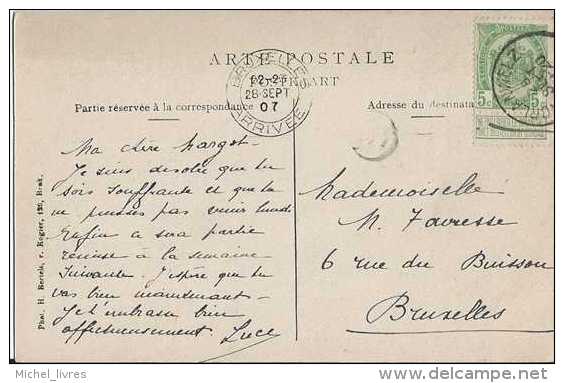 ARTE POSTALE
POSTKAART
BRUXELLES
22-23
28 SEPT
07
ARRIVÉE
5c 5c
Partie réservée à la correspondance
Adresse du destinata
Ma chère Margot –
Je suis désolée que tu
sois souffrante et que tu
ne puisses pas venir lundi
Enfin ce sera partie
remise à la semaine
suivante. J'espère que tu
vas bien maintenant –
Je t'embrasse bien
affectueusement Luce
Mademoiselle
M. Favresse
6 rue du Buisson
Bruxelles
Phot. H. Bertels, r. Rogier, 120, Brux.
Michel_livres
delcampe.net